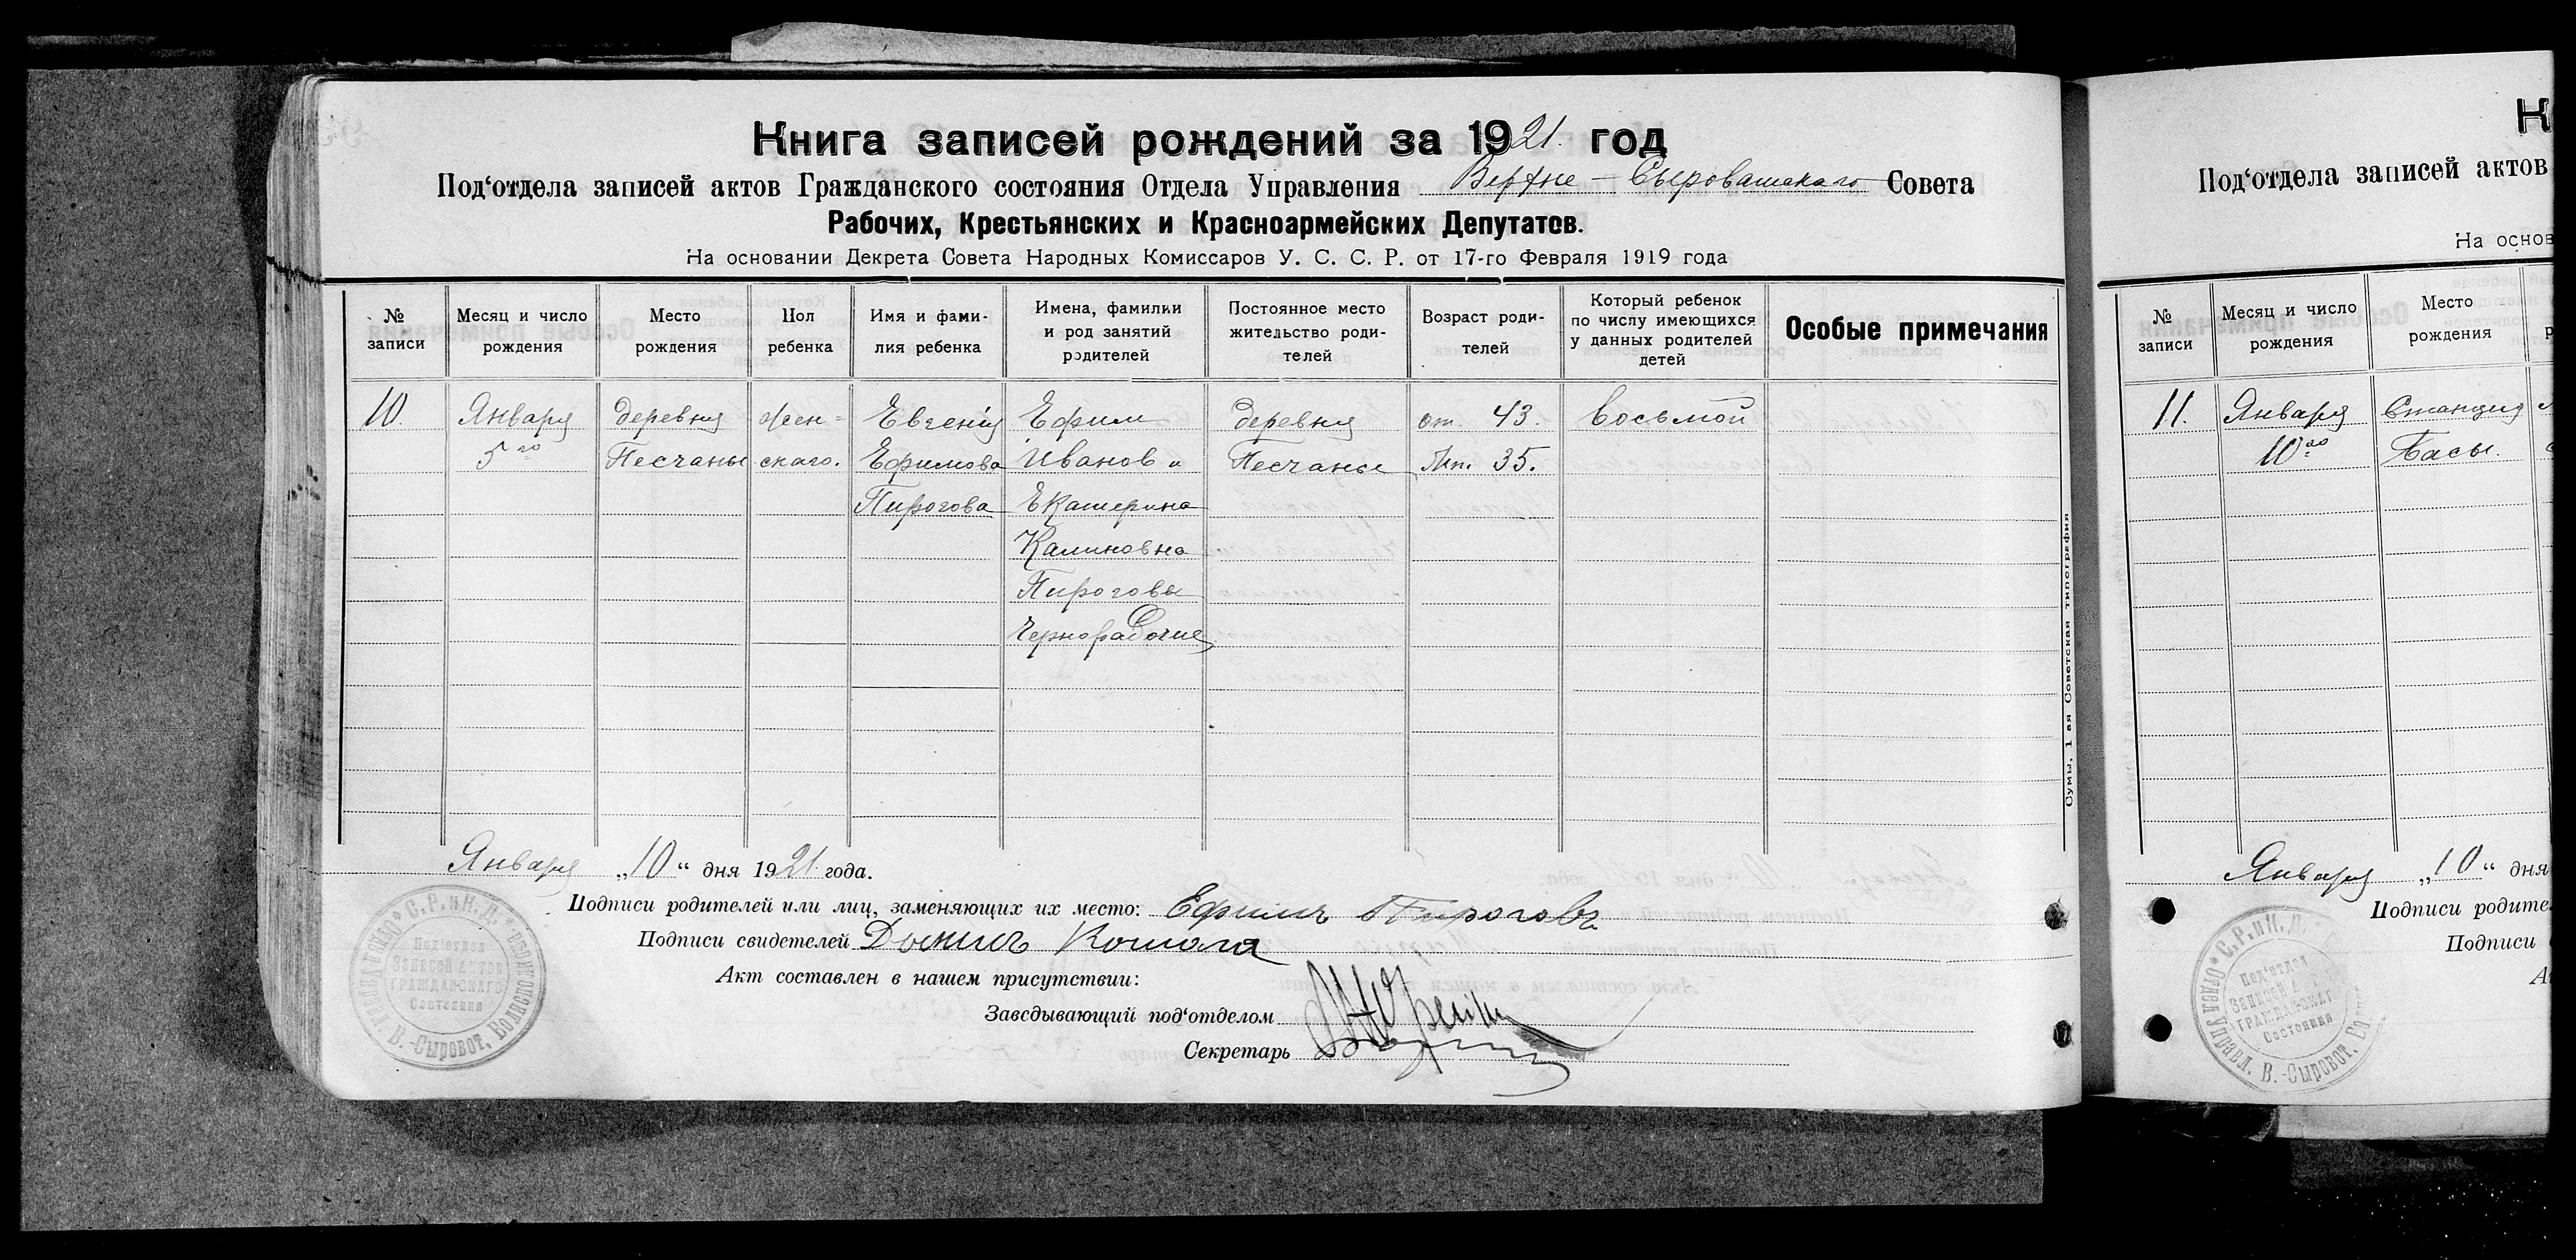 Книга записей рождений за 1921. год
Под‘отдела записей актов Гражданского состояния Отдела Управления Верхне-Сыроватскаго Совета
Рабочих, Крестьянских и Красноармейских Депутатов.
На основании Декрета Совета Народных Комиссаров У. С. С. Р. от 17-го Февраля 1919 года
№ записи
Месяц и число рождения
Место рождения
Пол ребенка
Имя и фами-
лия ребенка
Имена, фамилии
и род занятий
родителей
Постоянное место
жительство роди-
телей
Возраст роди-
телей
Который ребенок
по числу имеющихся
у данных родителей
детей
Особые примечания
10.
Января
5го
деревня
Песчаные
жен=
скаго.
Евгенія
Ефимова
Пирогова
Ефим
Иванов и
Екатерина
Калиновна
Пироговы
Чернорабочие
деревня
Песчаные
от. 43.
Мт. 35.
восьмой
Января „10“ дня 1921. года.
Подписи родителей или лиц, заменяющих их место: Ефимъ Пироговъ
Подписи свидетелей
Акт составлен в нашем присутствии:
Заведывающий под‘отделом
Секретарь
С.Р.и К.Д.
Под‘отдел
Записей Актов
Гражданскаго
Состояния
В.-Сыроват. Волисполк
Сумы, 1 ая Советская типография
К
Под‘отдела записей актов
На основ
№ записи
Месяц и число
рождения
Место
рождения
11.
Января
10го
Станция
Басы.
Января „10“ дня
Подписи родите
Подписи
Под‘отдел
Записей
Состояния
Отдел Управл. В.-Сыроват.